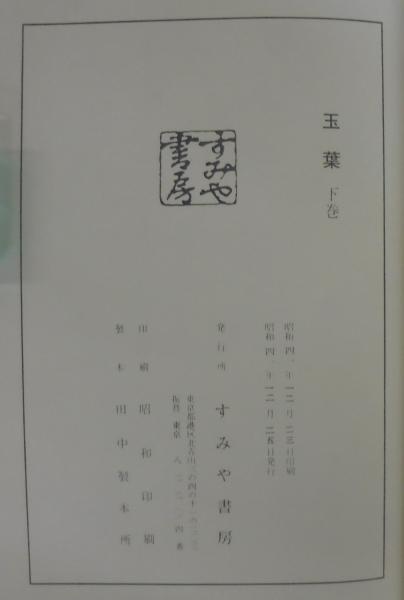 玉葉 下巻
すみや
書房
昭和四 年一二月 日印刷
昭和四 年一二月二五日発行
発行所 すみや書房
東京都港区北青山
振替 東京
印刷 昭和印刷
製本 田中製本所